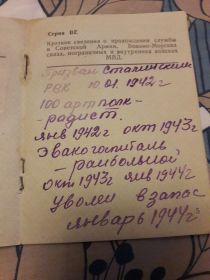 Серия ВЕ
Краткие сведения о прохождении службы
в Советской Армии, Военно-Морских
силах, пограничных и внутренних войсках
МВД.
Призван Сталинским
РВК 10.01.1942 г
100 арт полк -
- радист.
янв 1942 г окт 1943 г
Эвакогоспиталь
- раибольной
окт 1943 г янв 1944 г
Уволен в запас
январь 1944 г.